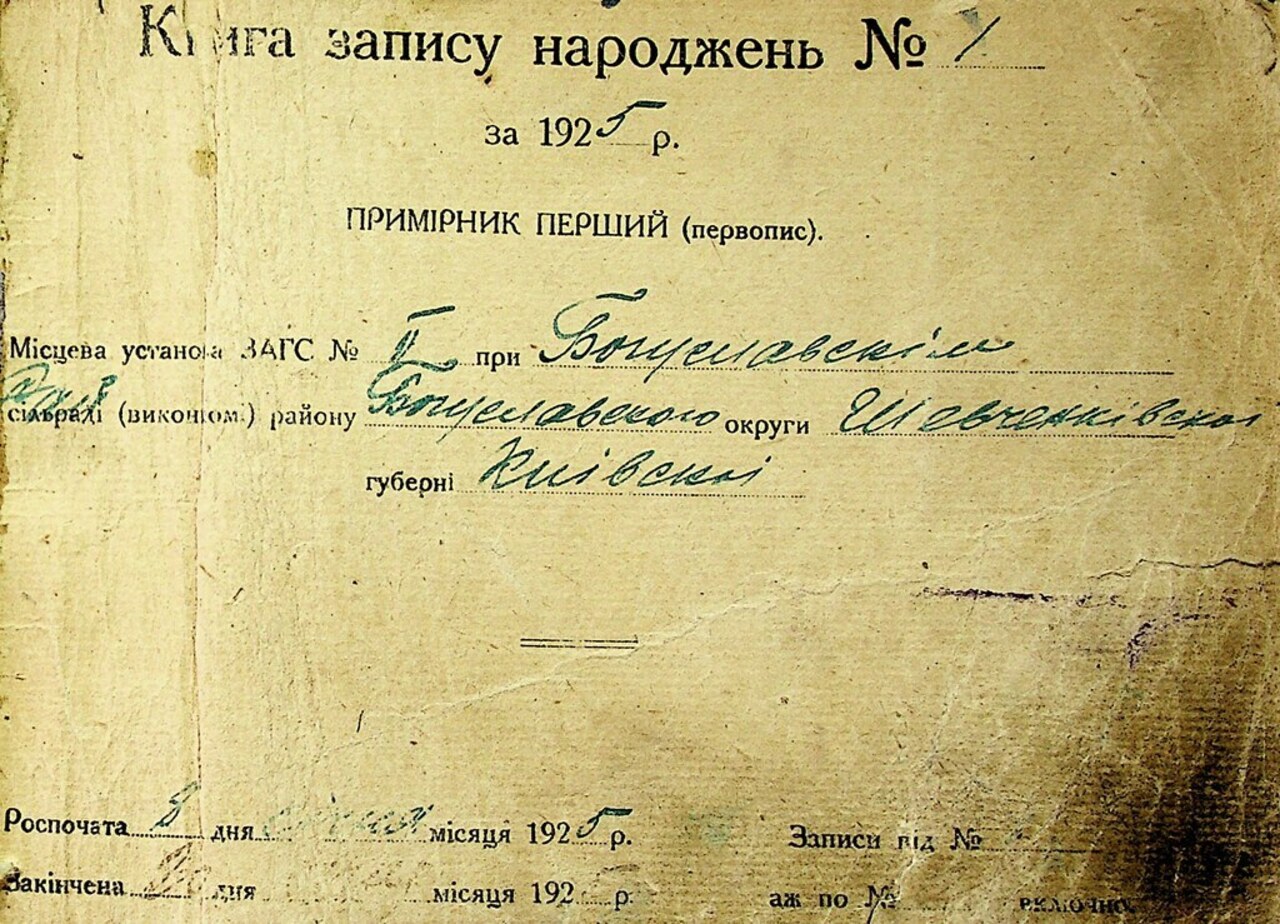 Книга запису народжень № 1
за 1925 р.
ПРИМІРНИК ПЕРШИЙ (первопис).
Місцева установа ЗАГС № II при Богуславскім
сільраді (виконком.) району Богуславского округи Шевченківскої
губерні Київскої
Роспочата 8 дня січня місяця 1925 р. Записи від №
Закінчена дня місяця 192 р. аж по № включно